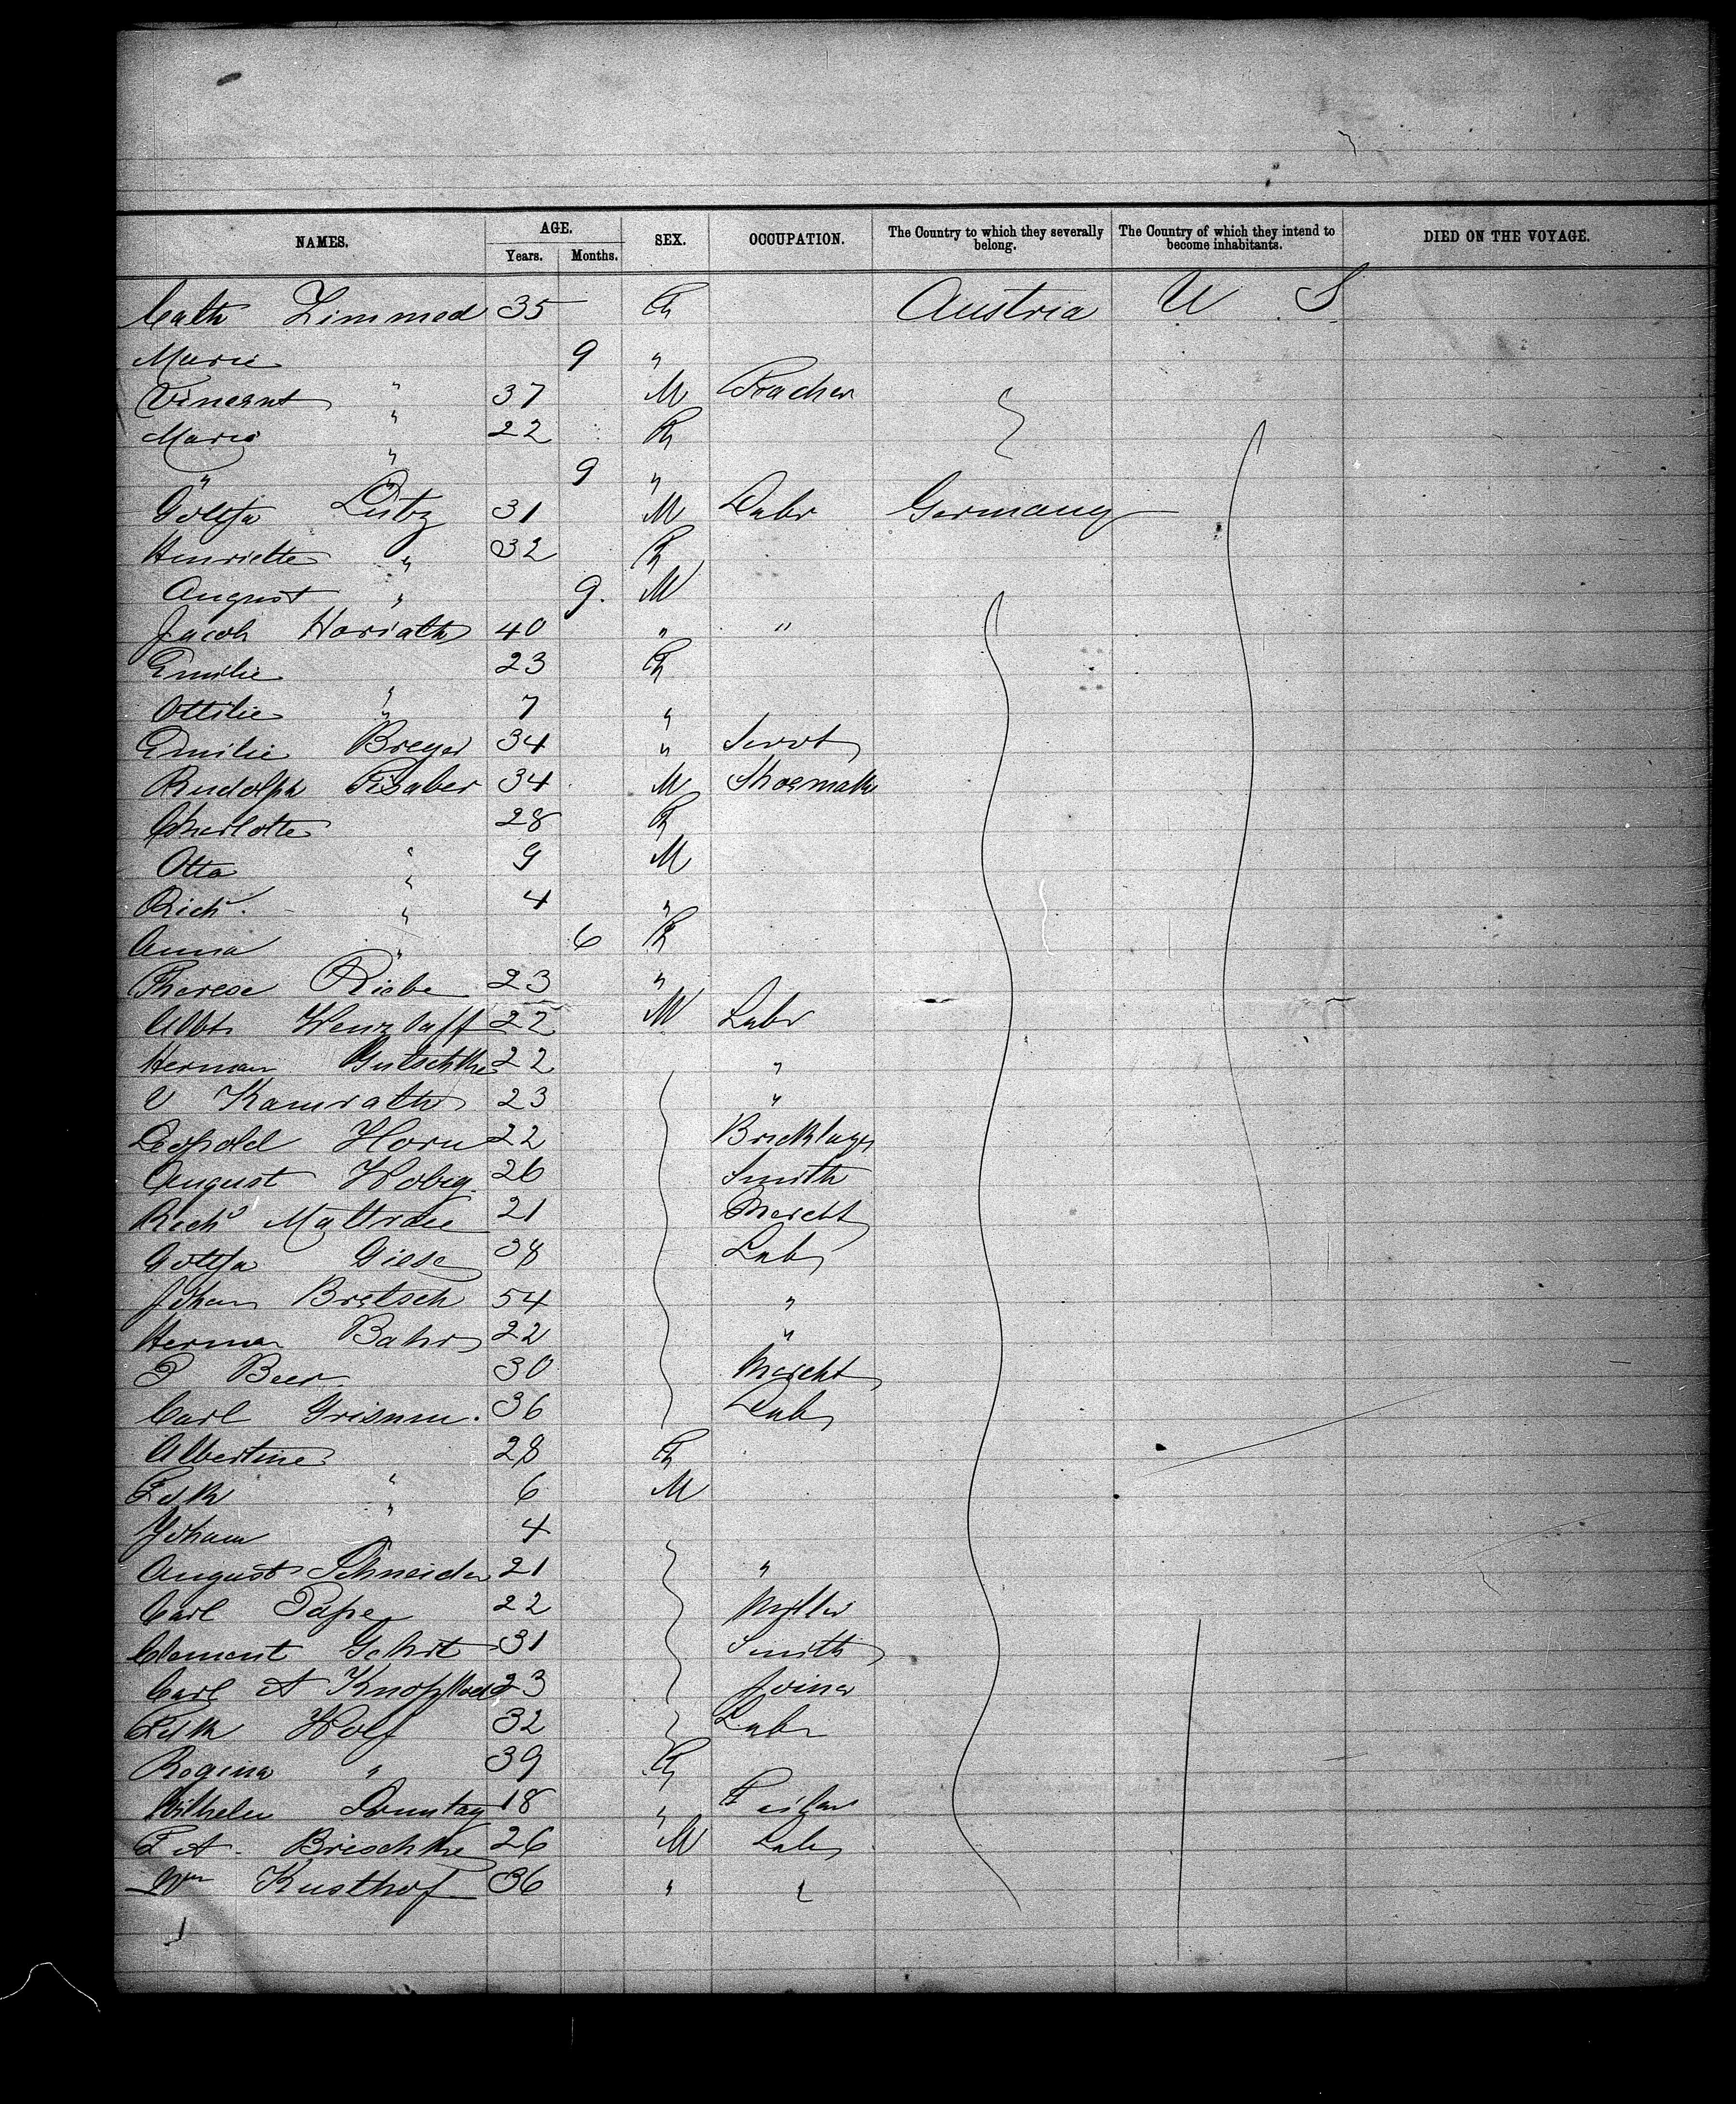 NAMES. AGE. SEX. OCCUPATION. The Country to which they severally belong. The Country of which they intend to become inhabitants. DIED ON THE VOYAGE.
Years. Months.
Cath Zimmed 35 Austria U S
Marie 9 "
Vincent " 37 M
Maria " 22
" " 9 "
Lutz 31 M Labr Germany
Henriette " 32
August " 9. M
Jacob Horiath 40 " "
Emilie 23
Ottilie " 7 "
Emilie Breyer 34 " Servt
Rudolph 34 M Shoemak
Charlotte 28
Otto " 9 M
Rich. " 4 "
Anna " 6
Therese Riebe 23 "
Albt Wenzlaff 22 M Labr
Herman Gutschke 22 "
V Kamrath 23 "
Leopold Horn 22 Bricklayr
August Hobig 26 Smith
Richd 21 Mercht
Giese 38 Lab
Johan Bretsch 54 "
Herman Bahr 22 "
P Beer 30 Mercht
Carl Grismm. 36 Lab
Albertine 28
Fdk " 6 M
Johan " 4
August Schneider 21 "
Carl Pape 22 Miller
Clement Gehrt 31 Smith
Carl A 23 Joiner
Fdk Wolf 32 Labr
Regina " 39
Wilhelm 18 "
F A. Brischke 26 M Labr
Wm Kusthof 36 "